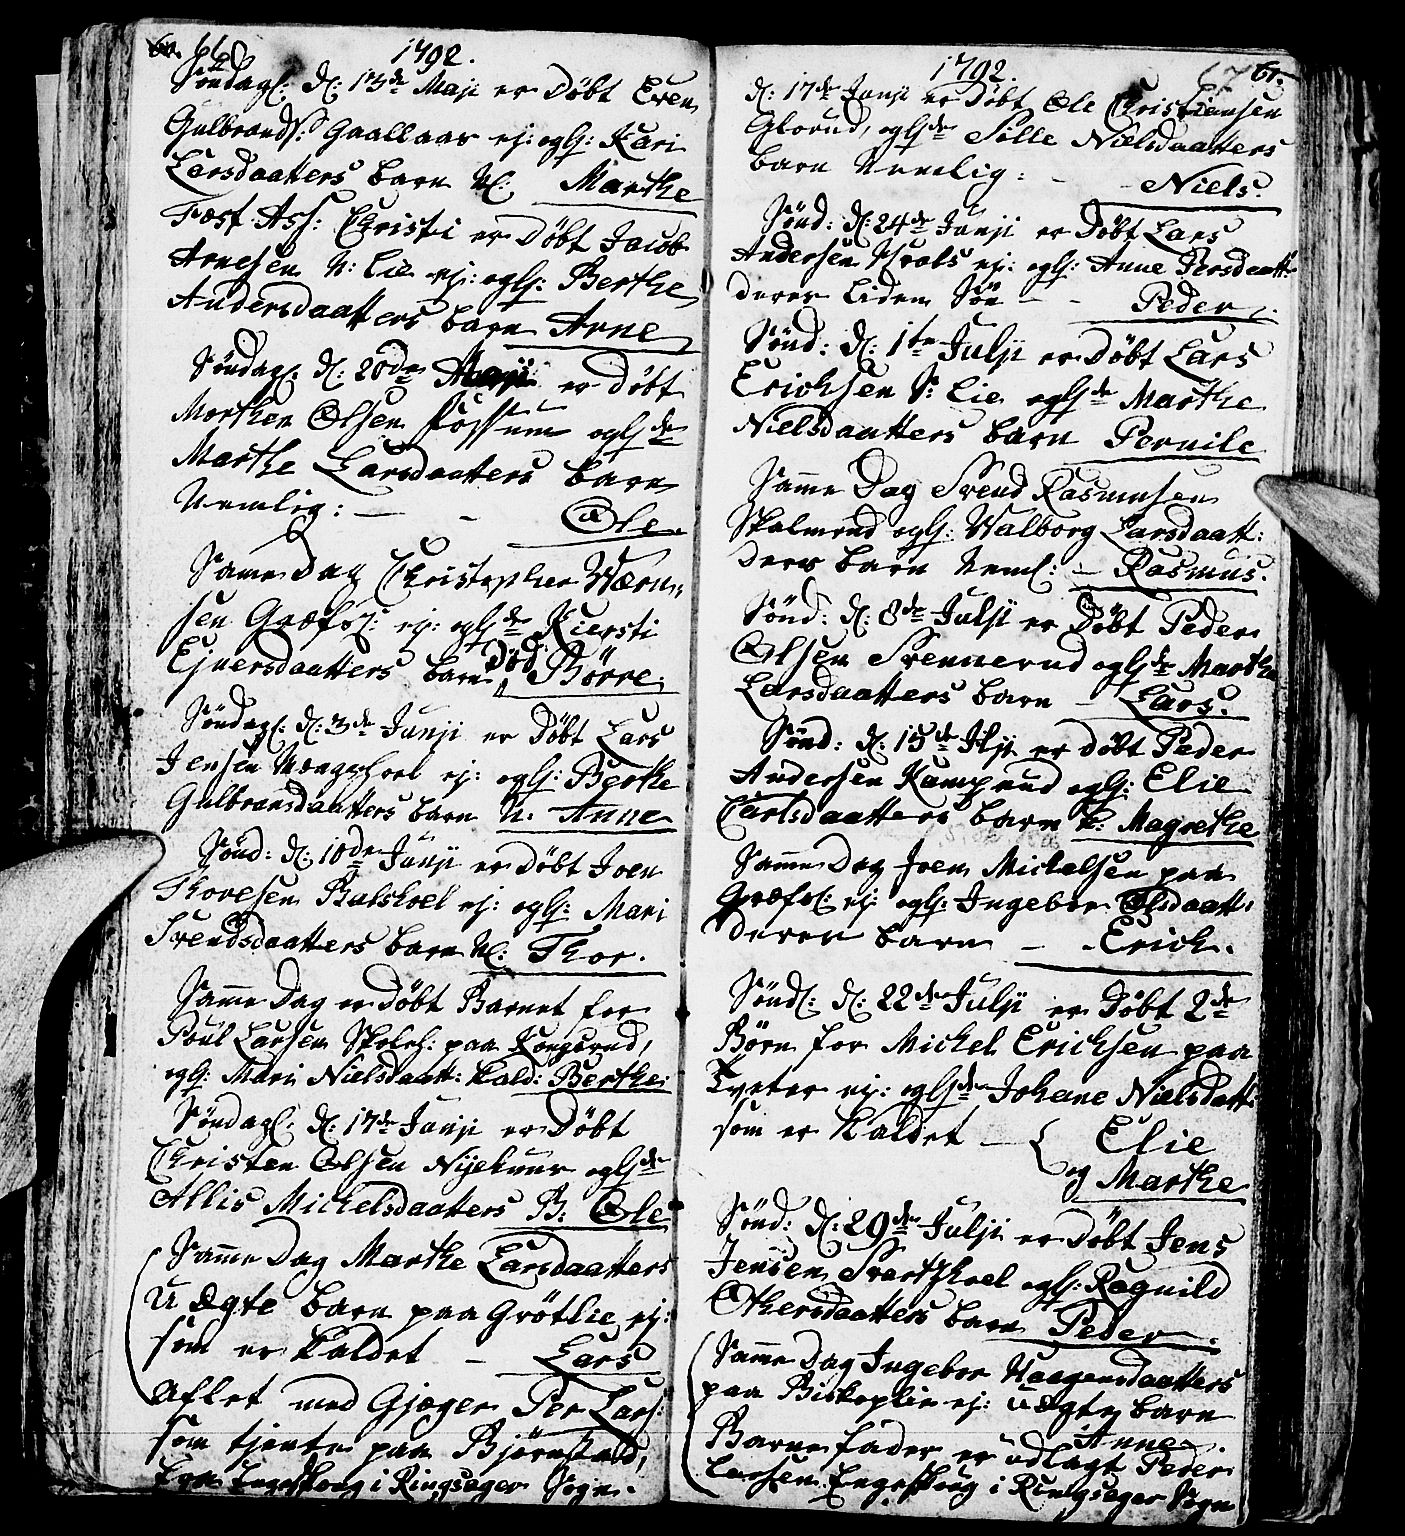 66
1792.
Søndagl: d: 13de Maji er Døbt Even
Gulbrands: Gaallaas ej: oglh: Kari
Larsdaatters barn Nl: Marthe
Fæst: Ass: Christi er Døbt Jacob
Arnesen N: Lie ej: oglh: Berthe
Andersdaatters barn Arne
Søndagl: d: 20de Maji er døbt
Morthen Olsen Fossum oglhde
Marthe Larsdaatters barn
Nemlig: - - Ole.
Same Dag Christopher
sen Græfs: ej: oglhde Kiersti
Ejversdaatters barn Død Børre.
Søndagl: d: 3de Junji er Døbt Lars
Jensen ej: oglh: Berthe
Gulbransdaatters barn N: Anne
Sønd: d: 10de Junji er Døbt Joen
Thoresen Balshoel ej: oglh: Mari
Svendsdaatters barn Nl: Thor.
Samme Dag er Døbt Barnet for
Poul Larsen Skoleh: paa Kongsrud,
oglh: Mari Nielsdaatt: kald: Berthe:
Søndagl: d: 17de Junji er Døbt
Christen Olsen oglhde
Allis Michelsdaatters B: Ole
Samme Dag Marthe Larsdaatters
U Ægte barn paa Grøtlie ej:
som er kaldet - Lars
Aflet med Gjæger Per Lars:
som tjente paa Bjørnstad,
fra Engeshoug i Ringsager Sogn.
1792.
67 61.
d: 17de Junji er Døbt Ole Christiansen
Glorud, oglhde Sille Nielsdaatters
barn Nemlig: - - Niels.
Sønd: d: 24de Junji er Døbt Lars
Andersen ej: oglh: Anne Persdaatt:
deres liden Søn - - Peder.
Sønd: d: 1te Julji er Døbt Lars
Erichsen S: Lie oglhde Marthe
Nielsdaatters barn Pernile
Samme Dag Svend Rasmusen
Skalmrud oglh: Walborg Larsdaatt:
deres barn Neml: - Rasmus.
Sønd: d: 8de Julji er Døbt Peder
Olsen Svennerud oglhde Marthe
Larsdaatters barn - Lars.
Sønd: d: 15de Jlji er døbt Peder
Andersen Kamprud oglh: Elie
Carlsdaatters barn N: Magrethe
Samme Dag Joen Michelsen paa
Græfs: ej: oglh: Ingebor Olsdaatt:
deres barn - - Erich.
Sønd: d: 22de Julji er Døbt 2de
Børn for Michel Erichsen paa
Tveter ej: oglhde Johane Nielsdatt:
som er kaldet - { Elie
og Marthe
Sønd: d: 29de Julji er Døbt Jens
Jensen Svartshoel oglh: Ragnild
Othersdaatters barn Peder.
Samme Dag Ingebor Haagensdaatters
paa Biskoplie ej: uægte barn
Anne.
Barnefader er udlagt Peder
Larsen Engeshoug i Ringsager Sogn